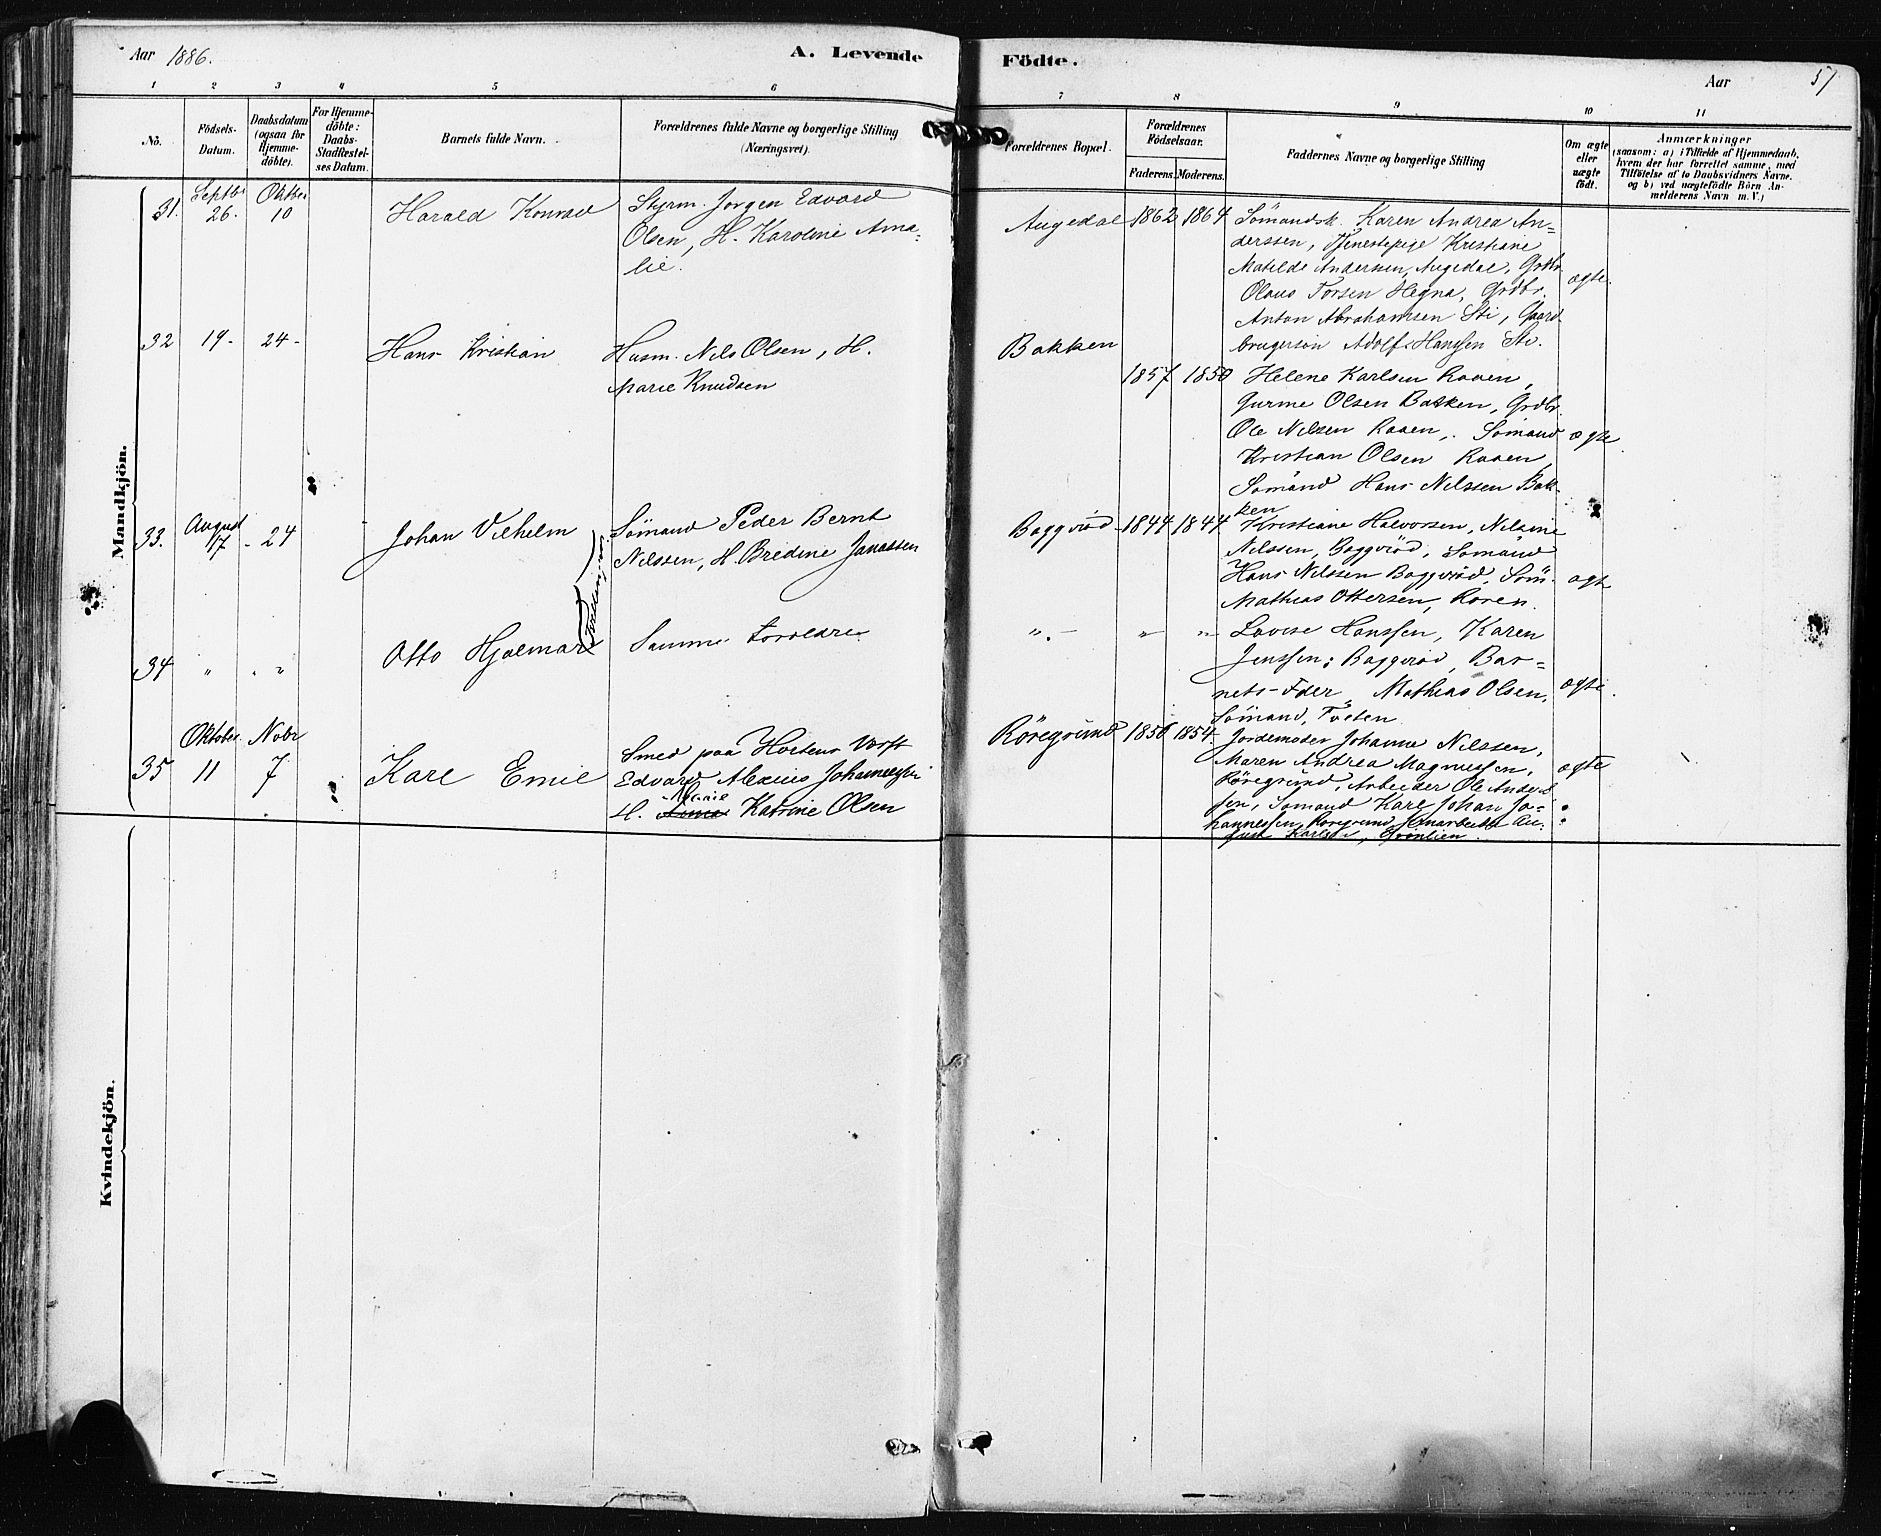 Aar 1886.
A. Levende
Födte.
Aar
51
1 2 3 4 5 6 7 8 9 10 11
No.
Födsels-
Datum.
Daabsdatum
(ogsaa for
Hjemme-
döbte).
For Hjemme-
döbte:
Daabs-
Stadfæstel-
ses Datum.
Barnets fulde Navn.
Forældrenes fulde Navne og borgerlige Stilling
(Næringsvei).
Forældrenes Bopæl.
Forældrenes
Födselsaar.
Faderens. Moderens.
Faddernes Navne og borgerlige Stilling
Om ægte
eller
uægte
födt.
Anmærkninger
(saasom: a) i Tilfælde af Hjemmedaab,
hvem der har forrettet samme, med
Tilföielse af to Daabsvidners Navne.
og b) ved uægtefödte Börn An-
melderens Navn m. V.)
Mandkjön.
31.
Septbr
26.
Oktbr
10
Harald Konrad
Styrm. Jørgen Edvard
Olsen, H. Karoline Ama-
lie.
Augedal
1862 1864
Sømandsk. Karen Andrea An-
derssen, Tjenestepige Kristiane
Matilde Andersen, Augedal, Grdbr.
Olaus Torsen Hegna, Grdbr.
Anton Abrahamsen Sti, Gaard-
brugersøn Adolf Hanssen Sti.
ægte.
32 19- 24-
Hans Kristian
Husm. Nils Olsen, H.
Marie Knudsen
Bakken
1857 1850
Helene Karlsen Raaen,
Gurine Olsen Bakken, Grdbr.
Ole Nilsen Raaen, Sømand
Kristian Olsen Raaen,
Sømand Hans Nilssen Bak-
ken
ægte
33.
August
17 - 24
Johan Vilhelm
Tvillinger
Sömand Peder Bernt
Nilssen, H. Bredine Janassen
Baggröd
1844 1844
Kristiane Halvorsen, Nilsine
Nilssen, Baggröd, Sømand
Hans Nilssen Baggröd, Söm.
Mathias Ottersen, Roren.
ægte
34 " . "
Otto Hjalmar
Samme Forældre
".- " "
Lovise Hanssen, Karen
Jenssen, Baggröd, Bar-
nets Fder, Mathias Olsen,
Sømand, Tveten
ægte.
35
Oktober
11
Nobr
7
Karl Emil
Smed paa Hortens Verft
Edvard Alexius Johannessen
H. Marie Katrine Olsen
Röregrund
1850 1854.
Jordemoder Johanne Nilssen,
Maren Andrea Magnussen,
Röregrund, Arbeider Ole Anders-
sen, Sømand Karl Johan Jo-
hannessen, Röregrund,
ægte
Kvindekjön.